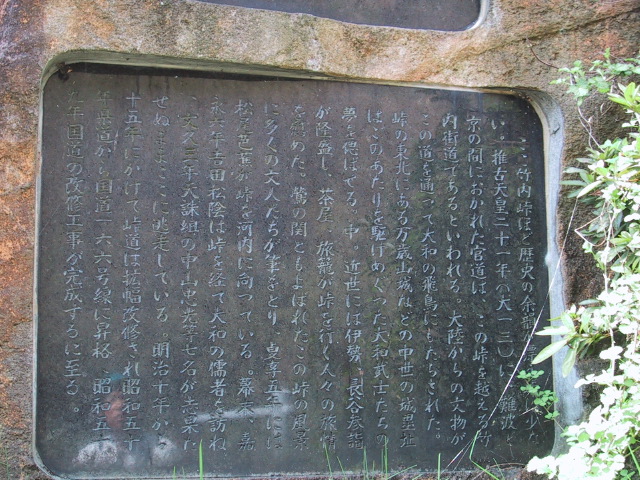 ここ竹内峠ほど歴史の余韻 少な
い。推古天皇二十一年(六一三)に、難波と
京の間におかれた官道は、この峠を越える竹
内街道であるといわれる。大陸からの文物が
この道を通って大和の飛鳥にもたらされた。
峠の東北にある万歳山城などの中世の城塁址
はこのあたりを駆けめぐった大和武士たちの
夢を偲ばせる。中、近世には伊勢、長谷参詣
が隆盛し、茶屋、旅籠が峠を行く人々の旅情
を慰めた。鶯の関ともよばれたこの峠の風景
に多くの文人たちが筆をとり、貞享五年には
松尾芭蕉が峠を河内に向っている。幕末、嘉
永六年吉田松陰は峠を経て大和の儒者を訪ね
、文久三年天誅組の中山忠光等七名が志果た
せぬままここに逃走している。明治十年から
十五年にかけて峠道は拡幅改修され昭和五十
年県道から国道一六六号線に昇格、昭和五十
九年国道の改修工事が完成するに至る。